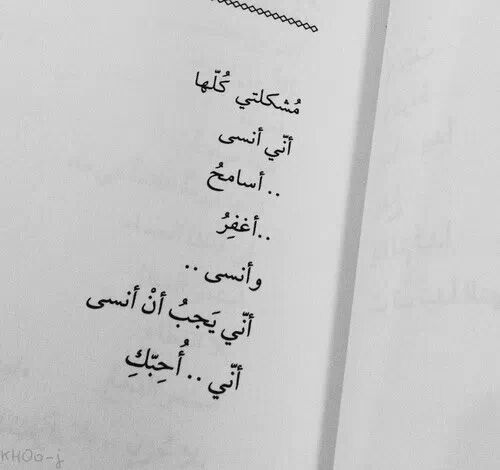 مُشكلتي كُلّها
أنّي أنسى
.. أسامحُ
..أغفِرُ
وأنسى ..
أنّي يَجبُ أنْ أنسى
أنّي .. أُحِبّكِ
KHOo-j